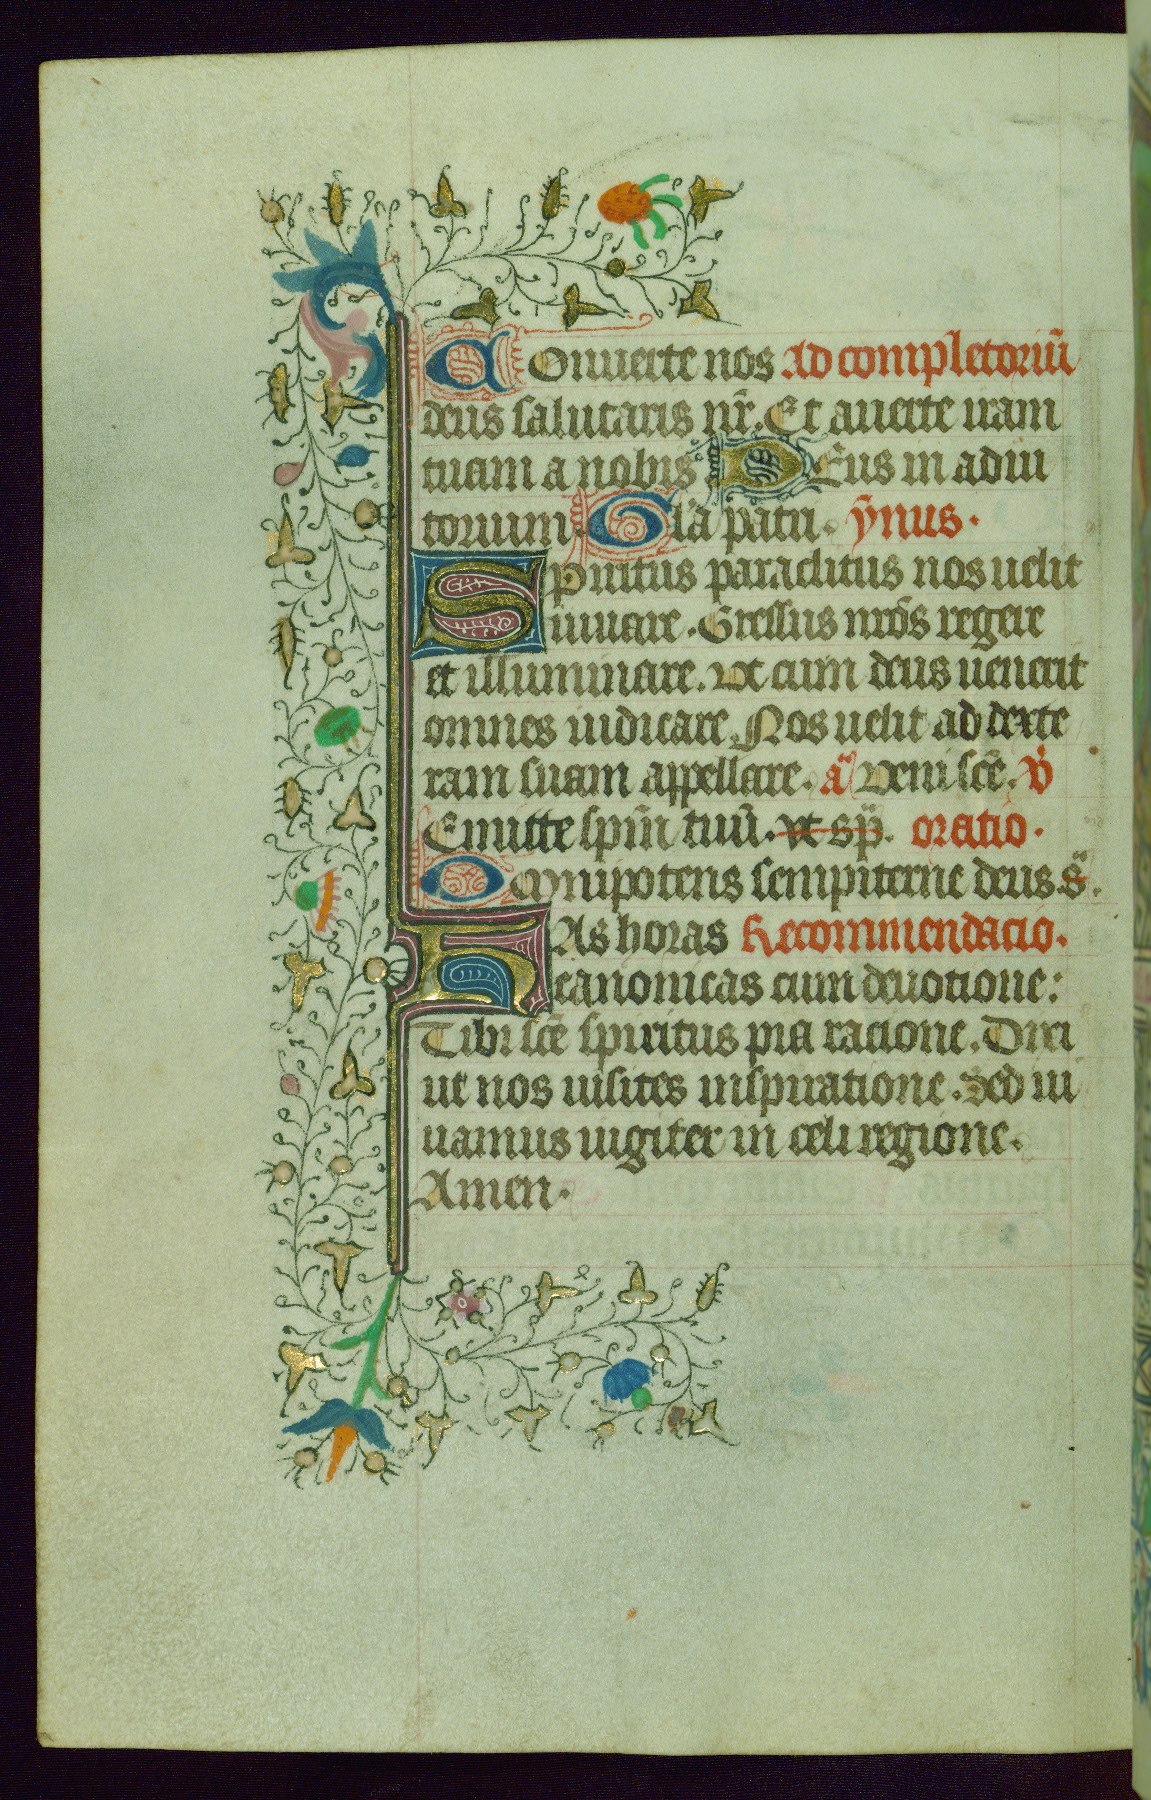 Conuerte nos Ad completoriū
deus salutaris nr̄. Et auerte iram
tuam a nobis Deus in adiu
torium. Gl'a patri. ȳnus.
Spiritus paraclitus nos uelit
iuuare. Gressus nr̄os regere
et illuminare. Ut cum deus uenerit
omnes iudicare. Nos uelit ad dexte
ram suam appellare. a Veni sc̄e. v
Emitte sp̄m tuū. et sp̄. oratio.
Omnipotens sempiterne deus. s.
Has horas Recommendacio.
canonicas cum deuotione:
Tibi sc̄e spiritus pia racione. Dixi
ut nos uisites inspiratione. Sed ui
uamus iugiter in celi regione.
Amen.